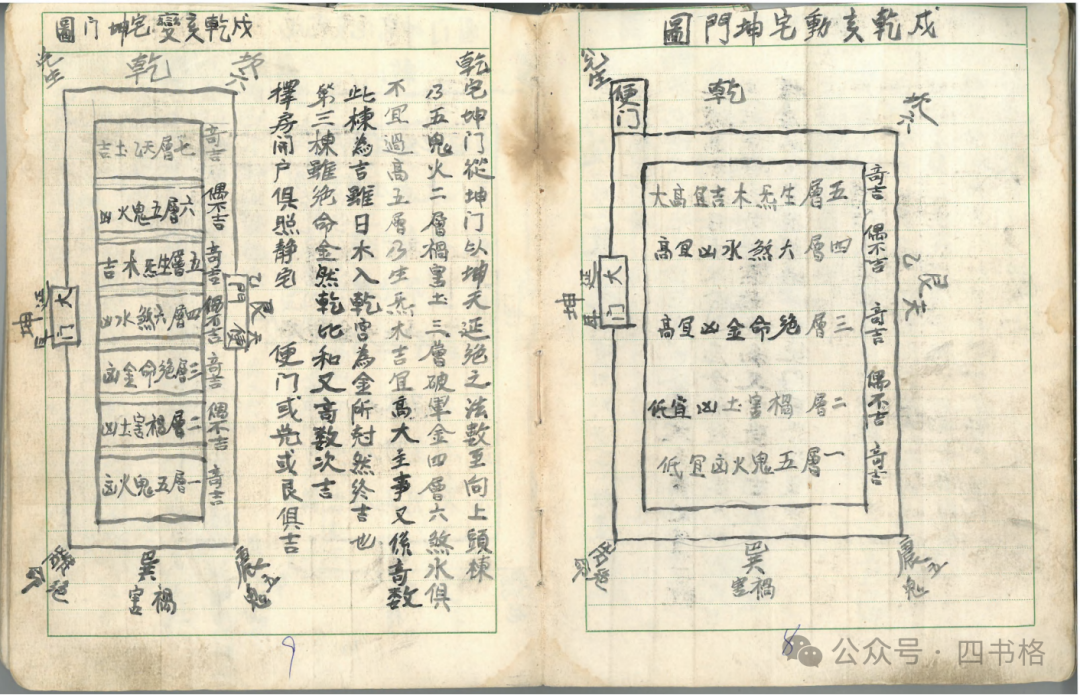 戍乾亥動宅坤門圖
乾
坎六
兌生
便门
大门
坤延年
艮天乙
奇吉
偶不吉
奇吉
偶不吉
奇吉
五層生炁木吉宜高大
四層六煞水凶宜高
三層绝命金凶宜高
二層禍害土凶宜低
一層五鬼火凶宜低
震五鬼
巽
禍害
8
戍乾亥變宅坤门圖
乾宅坤门從坤门以坤天延绝之法數至向上頭棟
乃五鬼火二層禍害土三層破軍金四層六煞水俱
不宜過高五層乃生炁木吉宜高大主事又係奇数
此棟為吉雖日木入乾宮為金所尅然終吉也
第三棟雖绝命金然乾比和又高数次吉
擇房開户俱照静宅 便门或兑或艮俱吉
乾
坎六
兌生
奇吉
偶不吉
奇吉
偶不吉
奇吉
偶不吉
奇吉
七層天乙土吉
六層五鬼火凶
五層生炁木吉
四層六煞水凶
三層绝命金凶
二層禍害土凶
一層五鬼火凶
艮天乙
便門
大门
坤延年
震五鬼
巽
禍害
9
公众号·四书格